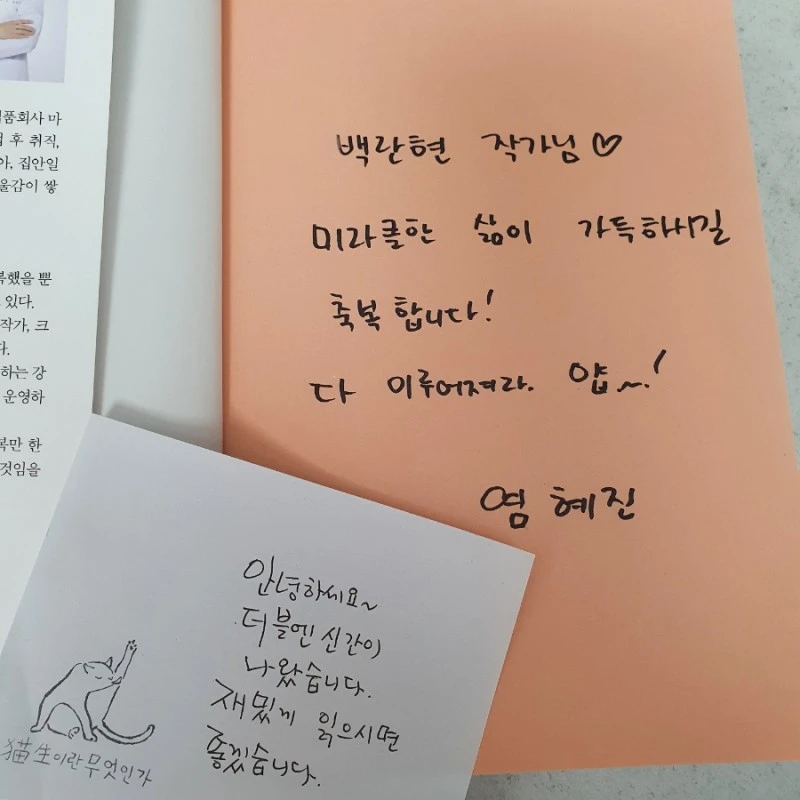 품회사 마
후 취직,
아, 집안일
울감이 쌓
했을 뿐
있다.
작가, 크
다.
하는 강
운영하
복만 한
것임을
백란현 작가님♡
미라클한 삶이 가득하시길
축복합니다!
다 이루어져라. 얍~!
염혜진
안녕하세요~
더블엔 신간이
나왔습니다.
재밌게 읽으시면
좋겠습니다.
猫生이란무엇인가